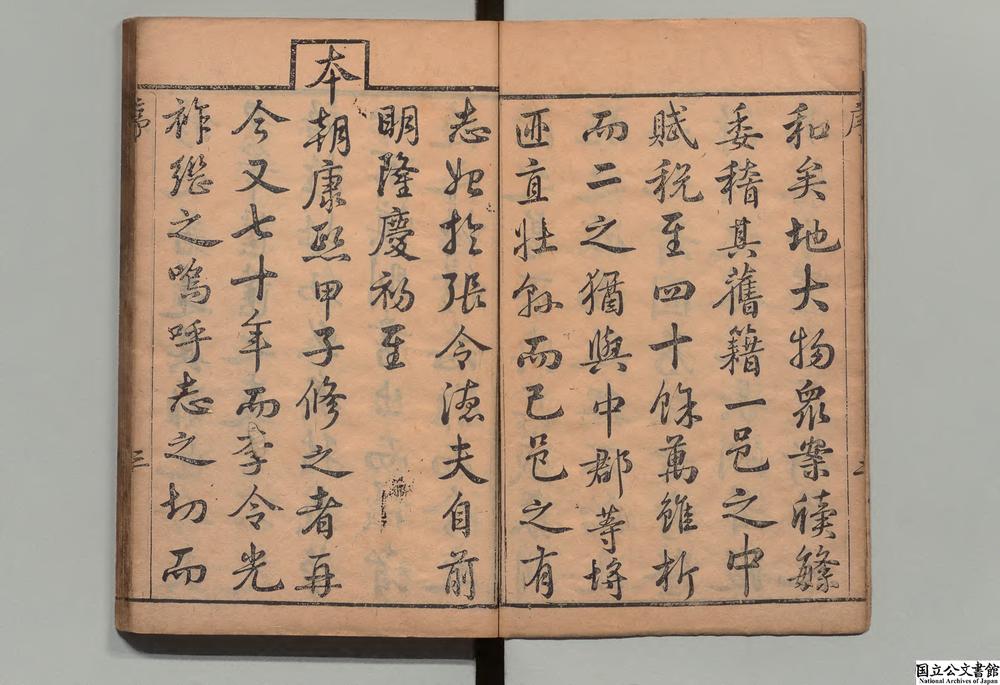 和矣地大物眾案牘繁
委稽其舊籍一邑之中
賦稅至四十餘萬雖析
而二之猶與中郡等埒
迺直壯縣而已邑之有
志始於張令德夫自前
明隆慶初至
本
朝康熙甲子修之者再
今又七十年而李令光
祚繼之嗚呼志之切而
序
三
国立公文書館
National Archives of Japan